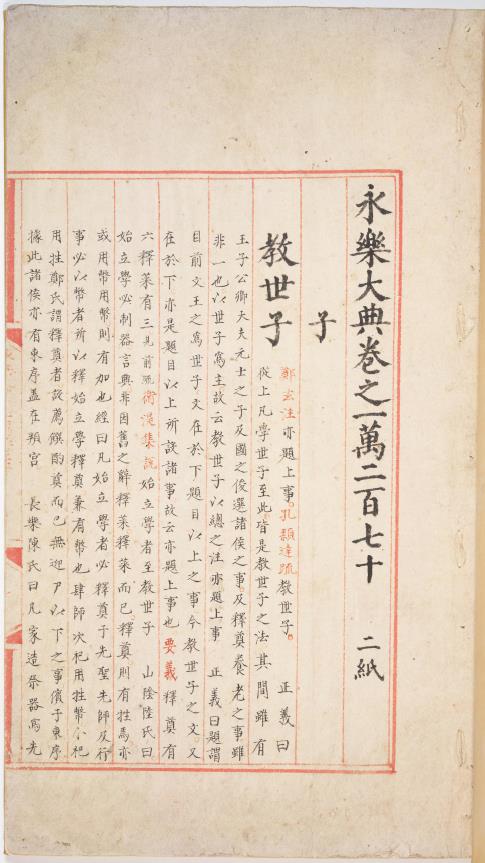 永樂大典卷之一萬二百七十 二紙
子
教世子
鄭玄注亦題上事。孔穎達疏教世子。 正義曰
從上凡學世子至此皆是教世子之法其間雖有
王子公卿大夫元士之子及國之俊選諸侯之事。及釋奠養老之事雖
非一也以世子爲主故云教世子以總之注亦題上事 正義曰題謂
目前文王之爲世子文在於下題目以上之事今教世子之文。又
在於下亦是題目以上所設諸事故云亦題上事也 要義釋奠有
六釋菜有三見前疏衛湜集說始立學者至教世子 山陰陸氏曰
始立學必制器言興非因舊之辭釋菜釋菜而已釋奠則有牲焉亦
或用幣用幣則有加也經曰凡始立學者必釋奠于先聖先師及行
事必以幣者所以釋始立學釋奠兼有幣也肆師次祀用牲幣小祀
用牲鄭氏謂釋奠者設薦饌酌奠而已無迎尸以下之事儐于東序
據此諸侯亦有東序盖在頖宮 長樂陳氏曰凡家造祭器爲先